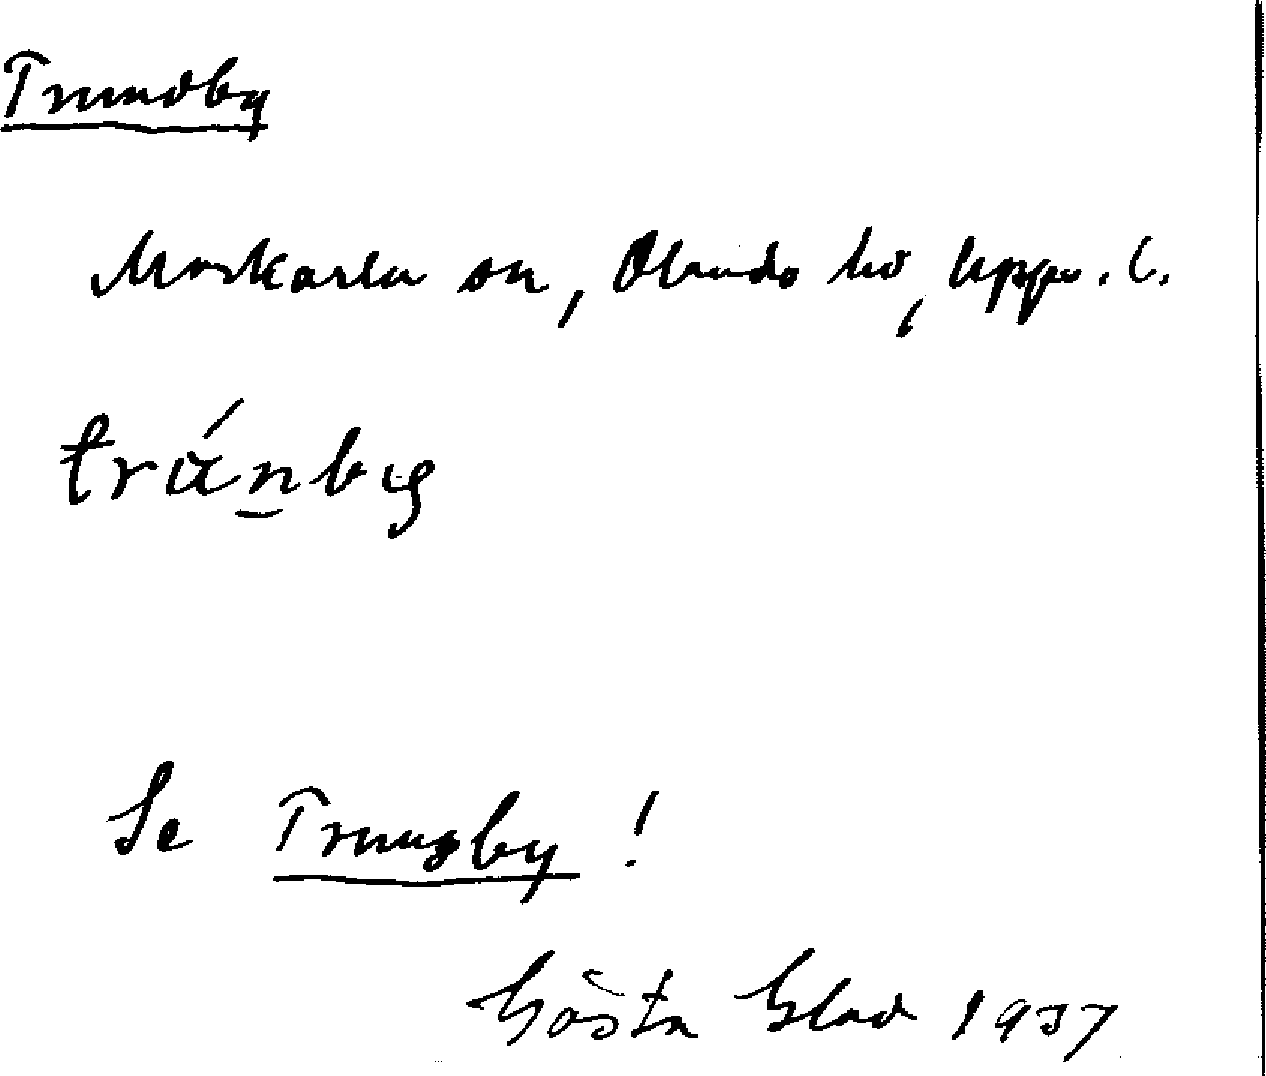 Trundby
Morkarla sn, Olands hd, Upps. l.
Se Trungby!
Gösta Glad 1937